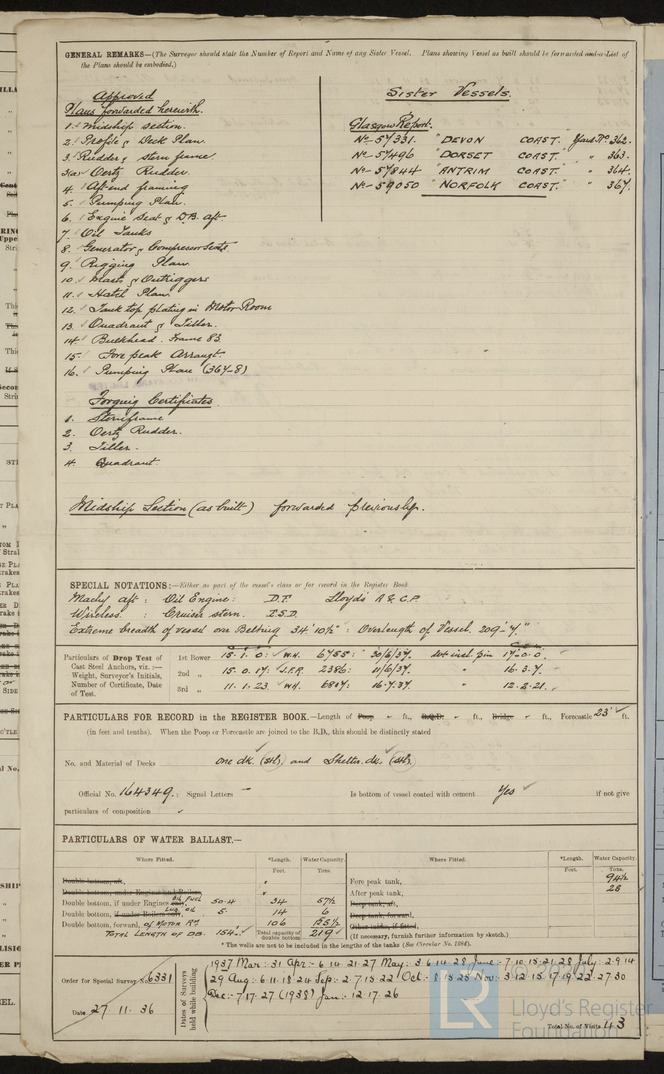 GENERAL REMARKS—(The Surveyor should state the Number of Report and Name of any Sister Vessel. Plans showing Vessel as built should be forwarded and a List of
the Plans should be embodied.)
Approved
Plans forwarded herewith.
1. Midship section.
2. Profile & Deck Plan.
3. Rudder & stern frame.
3(a) Oertz Rudder.
4. Aft end framing
5. Pumping Plan.
6. Engine Seat & D.B. aft.
7. Oil Tanks
8. Generator & Compressor Seats.
9. Rigging Plan
10. Masts & Outriggers
11. Hatch Plan
12. Tank top plating in Motor Room
13. Quadrant & Tiller.
14. Bulkhead. Frame 83.
15. Fore peak Arrangt.
16. Pumping Plan (367-8)
Sister Vessels.
Glasgow Report.
No- 57331. "DEVON COAST. Yard No 362.
No- 57496 "DORSET COAST. " 363.
No- 57844 "ANTRIM COAST. " 364.
No- 59050 "NORFOLK COAST. " 367.
Forging Certificates.
1. Sternframe
2. Oertz Rudder.
3. Tiller.
4. Quadrant.
Midship Section (as built) forwarded previously.
SPECIAL NOTATIONS:—Either as part of the vessel's class or for record in the Register Book
Machy aft: Oil Engine: D.F. Lloyd's A & C.P.
Wireless. : Cruiser stern. E.S.D.
Extreme breadth of vessel over Belting 34' 10½": Overlength of Vessel. 209'
Particulars of Drop Test of
Cast Steel Anchors, viz.:—
Weight, Surveyor's Initials,
Number of Certificate, Date
of Test.
1st Bower 15.1.0: W.H. 6755: 20/6/37. wt incl. pin 17.0.0.
2nd " 15.0.17: J.F.R. 2386: 11/6/37. " 16.3.7.
3rd " 11.1.23 W.H. 16.7.37. " 12.2.21.
PARTICULARS FOR RECORD in the REGISTER BOOK.—Length of Poop " ft., R.Q.D. " ft., Bridge " ft., Forecastle 23' ft.
(in feet and tenths). When the Poop or Forecastle are joined to the B.D., this should be distinctly stated
No. and Material of Decks one dk. (stl) and Shelter dk. (stl)
Official No. 164349.; Signal Letters - Is bottom of vessel coated with cement Yes if not give
particulars of composition
PARTICULARS OF WATER BALLAST.—
Where Fitted. *Length. Water Capacity. Where Fitted. *Length. Water Capacity.
Feet. Tons. Feet. Tons.
Double bottom, aft, Fore peak tank, 94½
Double bottom, under Engines and Boilers, After peak tank, 28
Double bottom, if under Engines only, Oil Fuel 50.4 34 57½ Deep tank, aft,
Double bottom, if under Boilers only, Lub Oil 5. 14 6 Deep tank, forward,
Double bottom, forward, of MOTOR RM 106 155½ Other tanks, if fitted,
TOTAL LENGTH OF D.B. 154. Total capacity of double bottom 219 (If necessary, furnish further information by sketch.)
* The wells are not to be included in the lengths of the tanks (See Circular No. 1084).
Order for Special Survey 6331
Date 27. 11. 36
Dates of Surveys
held while building
1937 Mar: 31 Apr: 6.14.21.27 May: 3.6.14.28 June: 7.10.15.21.28 July: 2.9.14
29 Aug: 6.11.18.24 Sep: 2.7.15.22 Oct: 8.15.25 Nov: 3.12.15.17.19.22.27.30
Dec: 7.17.27 (1938) Jan: 12.17.26
Total No. of Visits 43
LR
Lloyd's Register
Foundation